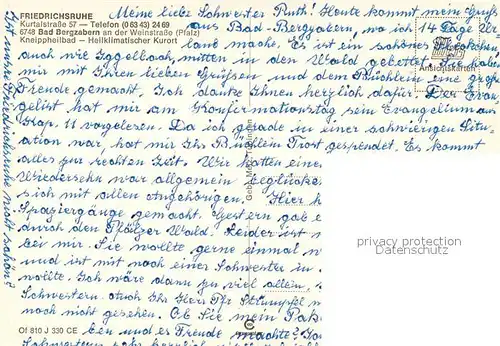 FRIEDRICHSRUHE
Kurtalstraße 57 — Telefon (0 63 43) 24 69
6748 Bad Bergzabern an der Weinstraße (Pfalz)
Kneippheilbad — Heilklimatischer Kurort
Meine liebe Schwester Ruth! Heute kommt mein Gruß
aus Bad-Bergzabern, wo ich 14 Tage Ur
laub mache. Es ist ein schönes Fleckchen
auch wie Iggelbach, mitten in den Wald gebettet. Sie haben
mir mit Ihren lieben Grüßen und dem Büchlein eine große
Freude gemacht. Ich danke Ihnen herzlich dafür. Der Evan
gelist hat mir am Konfirmationstag sein Evangelium
Kap. 11 vorgelesen. Da ich gerade in einer schwierigen Situ
ation war, hat mir Ihr Büchlein Trost gespendet. Es kommt
alles zur rechten Zeit. Wir hatten eine
Wiedersehn war allgemein beglücke
sich mit allen Angehörigen. Hier h
Spaziergänge gemacht. Gestern gab e
durch den Pfälzer Wald. Leider ist m
bei mir. Sie wollte gerne einmal w
und ist mit noch einer Schwester in
wollte. Ich wäre dann zu viel allein
Schwestern auch Ihr Herr Pfr Strümpfel
noch nicht gesehen. Ob Sie mein Pak
ben und es Freude machte? Ich
Schwestern sehr herzlich
Ist unsre Friedrichsruhe nicht schön?
Of 810 J 330 CE
Gebr. Metz
Ansichtskarten
privacy protection
Datenschutz